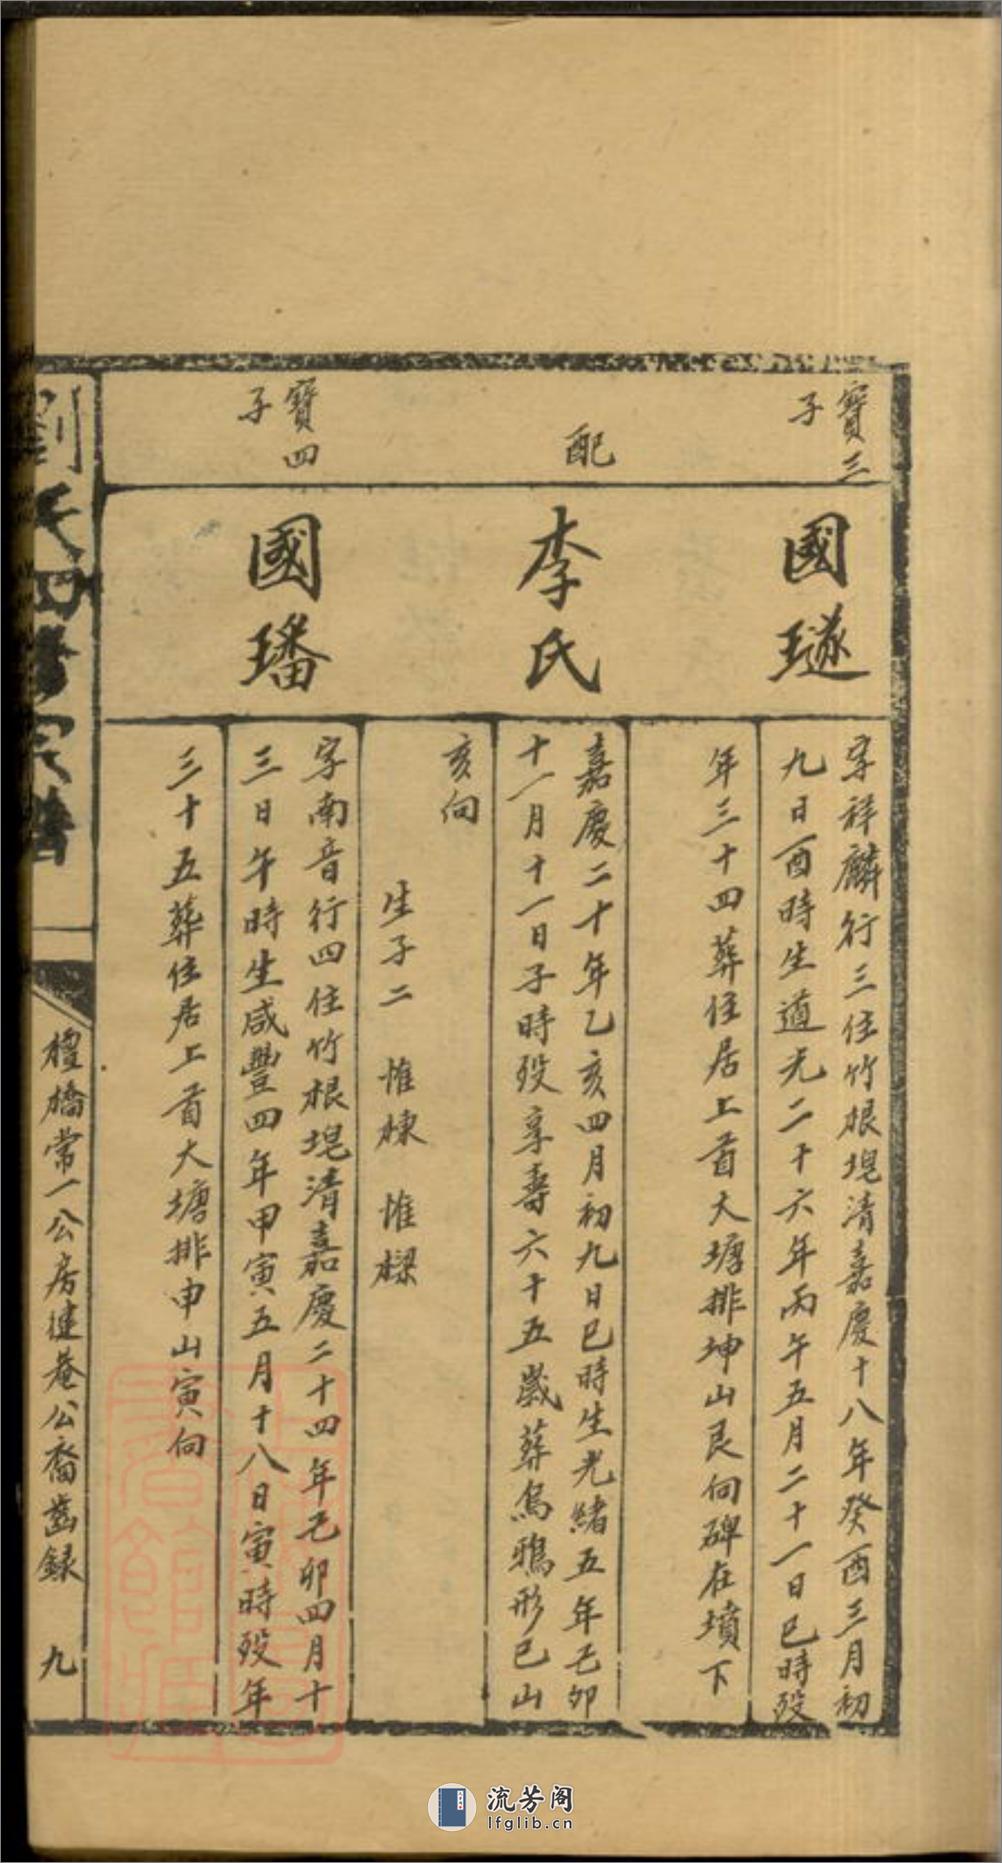 寶三
子
國璲
字祥麟行三住竹根塅清嘉慶十八年癸酉三月初
九日酉時生道光二十六年丙午五月二十一日巳時歿
年三十四葬住居上首大塘排坤山艮向碑在墳下
配
李氏
嘉慶二十年乙亥四月初九日巳時生光緒五年己卯
十一月十一日子時歿享壽六十五歲葬烏鴉形巳山
亥向
生子二 惟棟 惟樑
寶四
子
國璠
字南音行四住竹根塅清嘉慶二十四年己卯四月十
三日午時生咸豐四年甲寅五月十八日寅時歿年
三十五葬住居上首大塘排申山寅向
劉氏四修宗譜
橋常一公房建菴公裔齒録 九
流芳阁
lfglib.cn